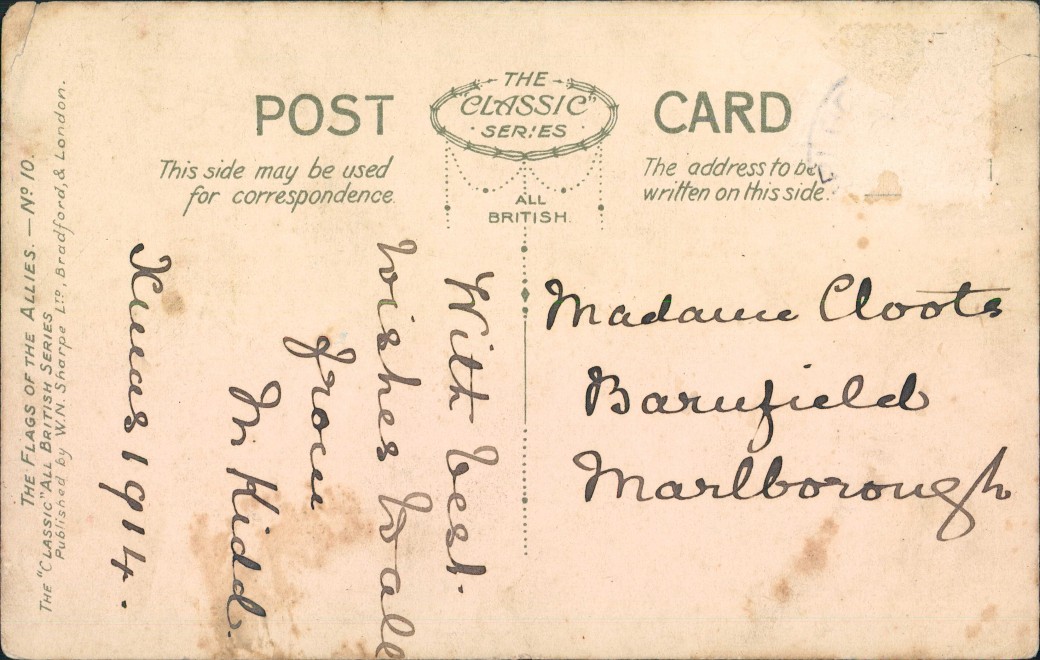 POST CARD
THE
"CLASSIC"
SERIES
This side may be used
for correspondence.
The address to be
written on this side.
ALL
BRITISH.
With best
wishes to all
from
M Kidd.
Xmas 1914.
Madame Cloots
Barnfield
Marlborough
THE FLAGS OF THE ALLIES. — No 10.
THE "CLASSIC" ALL BRITISH SERIES
Published by W.N. Sharpe Ltd, Bradford, & London.